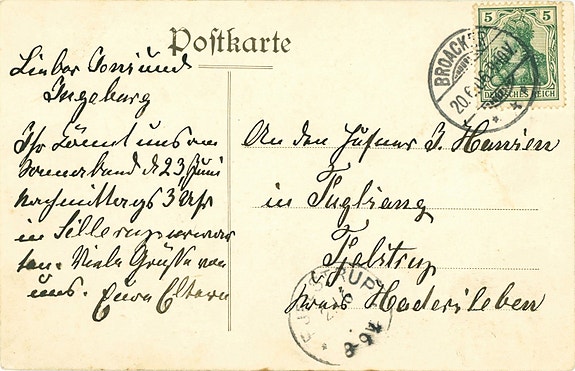 Postkarte
Lieber Toni und
Ingeburg
Ihr könnt uns am
Sonnabend d 23, Juni
nachmittags 3 Uhr
in Sillerup erwar
ten. Viele Grüße von
uns. Eure Eltern
An den Hufner J. Hansen
in
Fjelstrup
Kreis Hadersleben
5 5
DEUTSCHES REICH
BROACKER
20.6.06